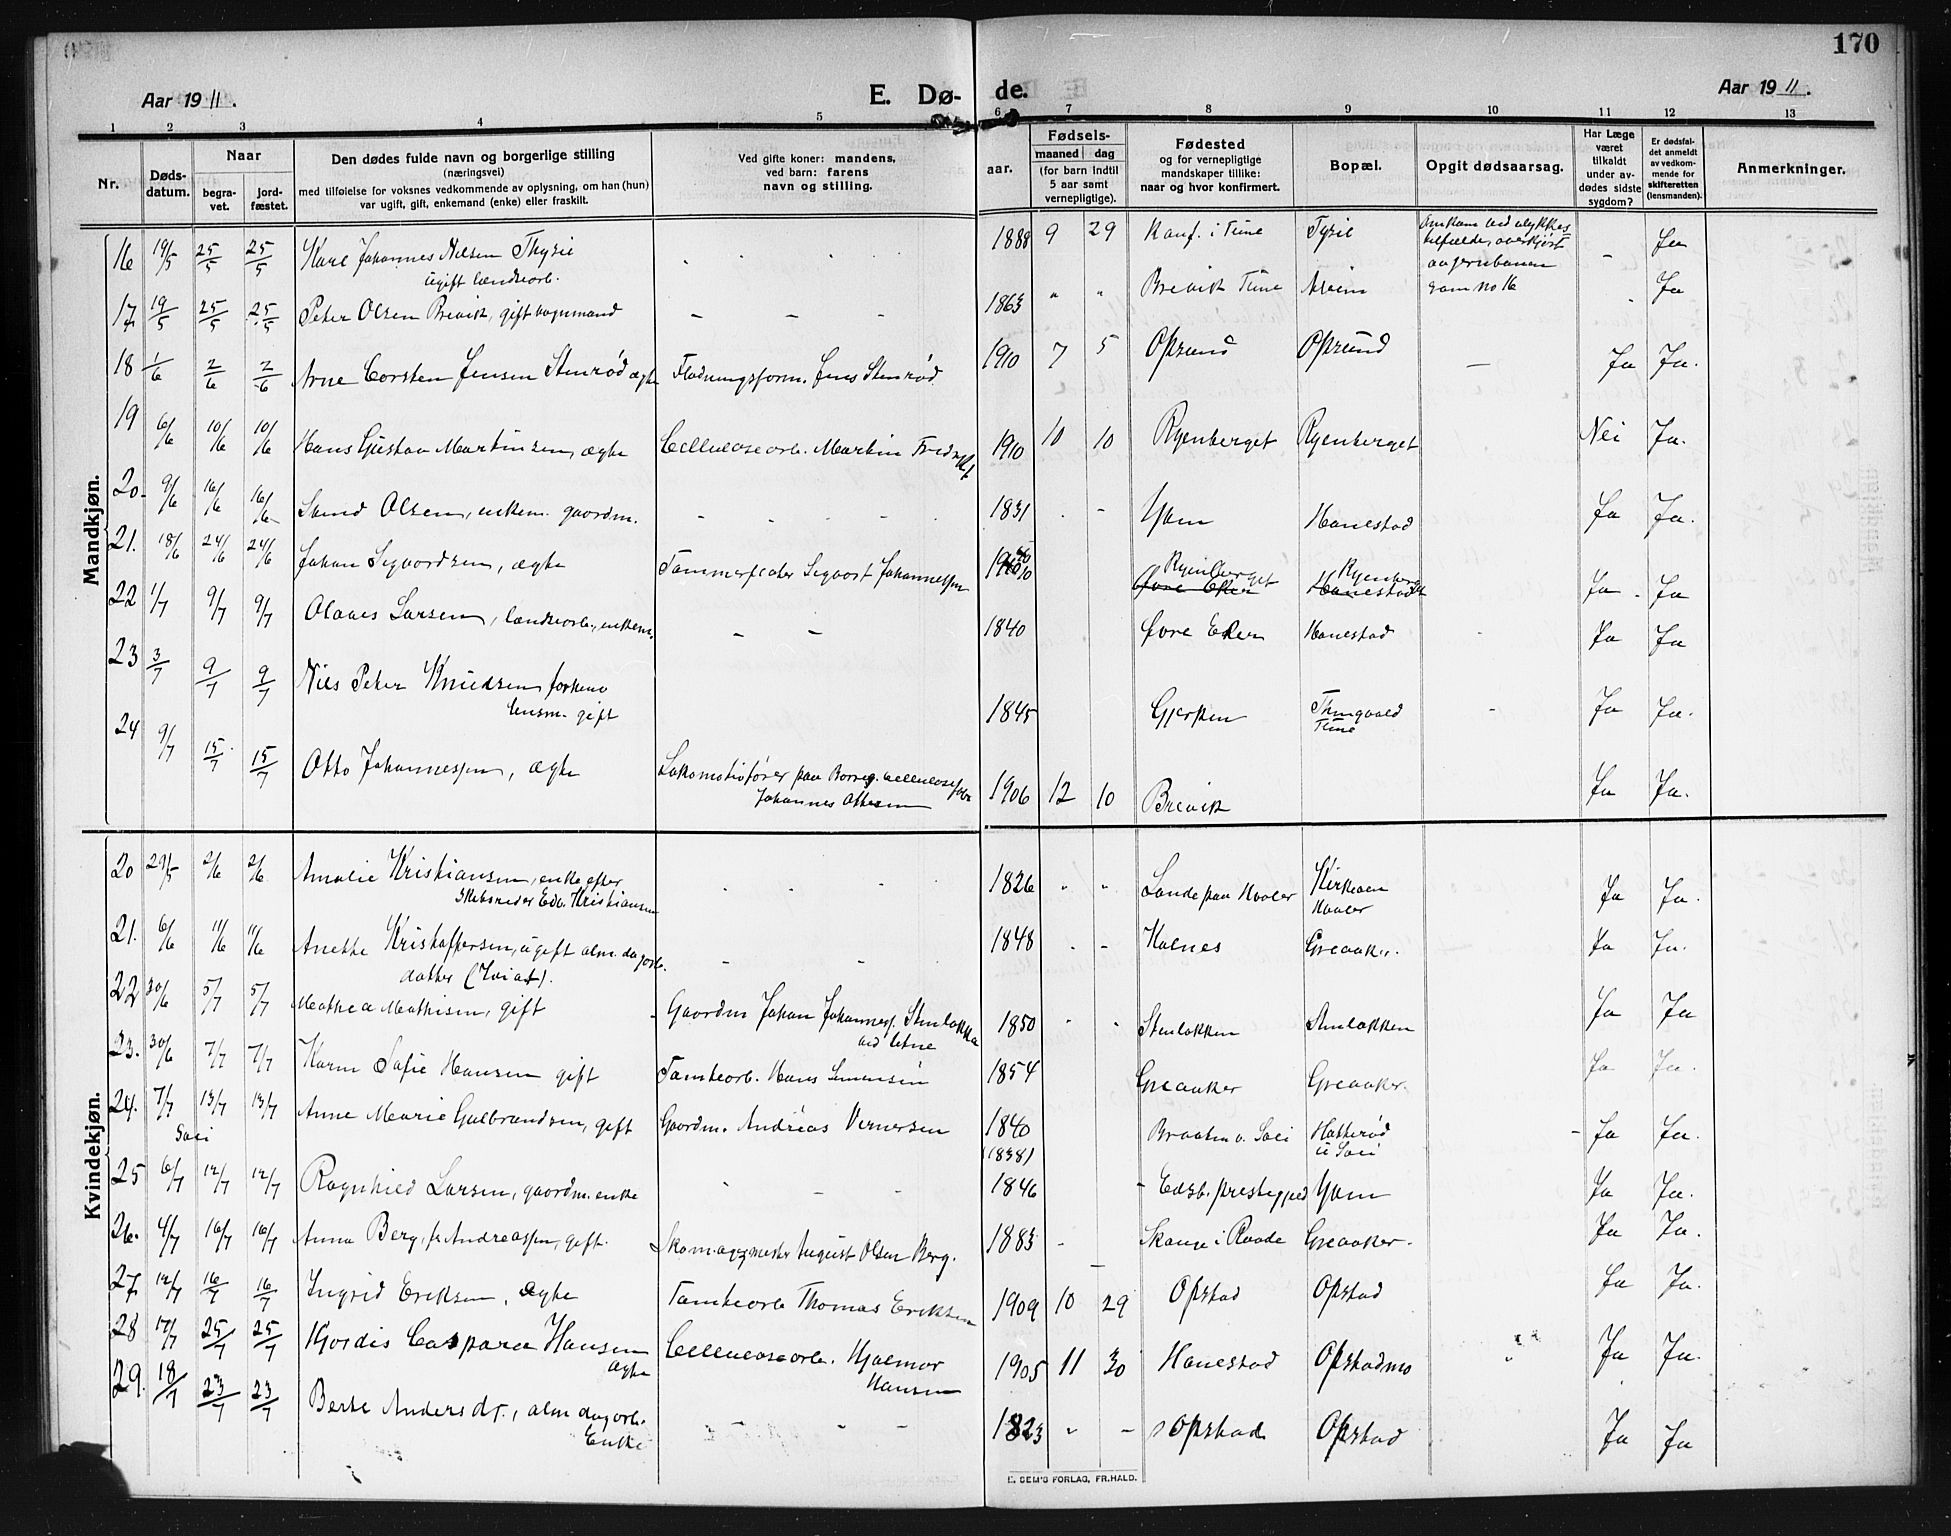 170
Aar 1911.
E. Dø-
de.
Aar 1911.
1 2 3 4 5 6 7 8 9 10 11 12 13
Nr.
Døds-
datum.
Naar
begra-
vet.
jord-
fæstet.
Den dødes fulde navn og borgerlige stilling
(næringsvei)
med tilføielse for voksnes vedkommende av oplysning, om han (hun)
var ugift, gift, enkemand (enke) eller fraskilt.
Ved gifte koner: mandens,
ved barn: farens
navn og stilling.
Fødsels-
aar.
maaned dag
(for barn indtil
5 aar samt
vernepligtige).
Fødested
og for vernepligtige
mandskaper tillike:
naar og hvor konfirmert.
Bopæl.
Opgit dødsaarsag.
Har Læge
været
tilkaldt
under av-
dødes sidste
sygdom?
Er dødsfal-
det anmeldt
av vedkom-
mende for
skifteretten
(lensmanden).
Anmerkninger.
Mandkjøn.
16 19/5 25/5 25/5 Karl Johannes Nilsen Thysie 1888 9 29 Konf. i Tune Tysie Omkom ved ulykkes- Ja
ugift landeorb. tilfælde, overkjørt
av jernbanen
17 19/5 25/5 25/5 Peter Olsen Brevik, gift vognmand 1863 " " Brevik Tune som no 16 Ja
18 1/6 2/6 2/6 Arne Torsten Jensen Stenrød ægte Jens Stenrød 1910 7 5 Opsund Opsund Ja Ja.
19 6/6 10/6 10/6 Hans Gustav Martinsen, ægte Cellulosearb. Martin 1910 10 10 Ryenberget Ryenberget Nei Ja.
20. 9/6 16/6 16/6 Olsen, enkem. gaardm. 1831 Yven Hanestad Ja Ja.
21. 18/6 24/6 24/6 Johan Sigvardsen, ægte Sigvart Johannessen 1910 Ryenberget Ryenberg Ja Ja
Øvre Eker Hanestad
22 1/7 9/7 9/7 Olaves Larsen, landeorb., enkem. 1840 Øvre Eker Hanestad Ja Ja
23 3/7 9/7 9/7 Nils Peter Knudsen forhenv 1845 Gjerpen Thingvold Ja Ja.
lensm. gift Tune
24 9/7 15/7 15/7 Otto Johannessen, ægte Lokomotivfører paa Borreg. cellulosefabr 1906 12 10 Brevik Ja Ja.
Johannes Ottesen
Kvindekjøn.
20 29/5 2/6 2/6 Amalie Kristiansen, enke efter 1826 " " Lande paa Hvaler Kirkeøen Ja Ja.
Skibsreder Edv. Kristiansen Hvaler
21. 6/6 11/6 11/6 Anette Kristoffersen, ugift alm. dagorb. 1848 Kolnes Greaaker. Ja Ja.
datter
22 30/6 5/7 5/7 Mathea Mathisen, gift Gaardm Johan Johanness. Stenløkka 1850 Stenløkken Stenløkken Ja Ja
ved Utne
23. 30/6 7/7 7/7 Karen Sofie Hansen gift Tomteorb. Hans Simensen 1854 Greaaker Greaaker. Ja Ja.
24. 7/7 13/7 13/7 Anne Marie Gulbrandsen, gift Gaardm. Andreas Vernersen 1840 Braaten v. Soli Hatterød Ja Ja.
Soli (1838) u Soli
25 6/7 12/7 12/7 Ragnhild Larsen, gaardm. enke 1846 Eidsb. prestegjeld Yven Ja Ja.
26. 4/7 16/7 16/7 Anna Berg, f. Andreassen, gift. Skomagermester August Olsen Berg. 1883 i Raade Greaaker. Ja Ja.
27 12/7 16/7 16/7 Ingrid Eriksen, ægte Tomteorb Thomas Eriksen 1909 10 29 Opstad Opstad Ja Ja.
28 17/7 25/7 25/7 Hjordis Caspara Hansen Celluloseorb. Hjalmar 1905 11 30 Hanestad Opstadmo Ja Ja.
ægte Hansen
29. 18/7 23/7 23/7 Berte Andersdt., alm dagorb. 1823 " Opstad Opstad Ja Ja
Enke
E. SEM'S FORLAG, FR.HALD.